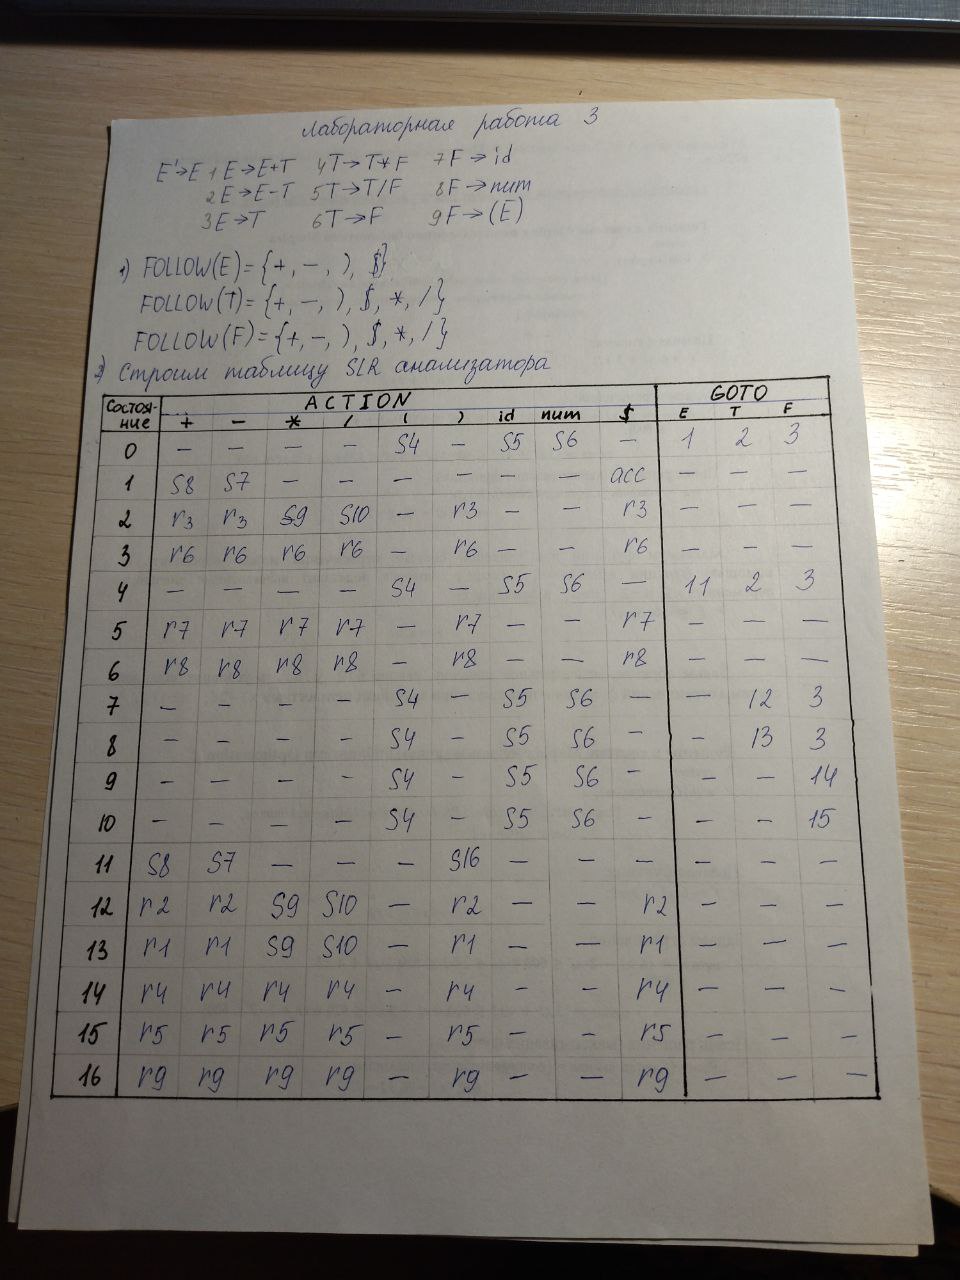 Лабораторная работа 3
E'→E 1 E→E+T 4 T→T*F 7 F→id
2 E→E-T 5 T→T/F 8 F→num
3 E→T 6 T→F 9 F→(E)
1) FOLLOW(E)={+,-,),$}
FOLLOW(T)={+,-,),$,*,/}
FOLLOW(F)={+,-,),$,*,/}
2) Строим таблицу SLR анализатора
Состоя-ние ACTION GOTO
+ - * / ( ) id num $ E T F
0 – – – – S4 – S5 S6 – 1 2 3
1 S8 S7 – – – – – – acc – – –
2 r3 r3 S9 S10 – r3 – – r3 – – –
3 r6 r6 r6 r6 – r6 – – r6 – – –
4 – – – – S4 – S5 S6 – 11 2 3
5 r7 r7 r7 r7 – r7 – – r7 – – –
6 r8 r8 r8 r8 – r8 – – r8 – – –
7 – – – – S4 – S5 S6 – – 12 3
8 – – – – S4 – S5 S6 – – 13 3
9 – – – – S4 – S5 S6 – – – 14
10 – – – – S4 – S5 S6 – – – 15
11 S8 S7 – – – S16 – – – – – –
12 r2 r2 S9 S10 – r2 – – r2 – – –
13 r1 r1 S9 S10 – r1 – – r1 – – –
14 r4 r4 r4 r4 – r4 – – r4 – – –
15 r5 r5 r5 r5 – r5 – – r5 – – –
16 r9 r9 r9 r9 – r9 – – r9 – – –